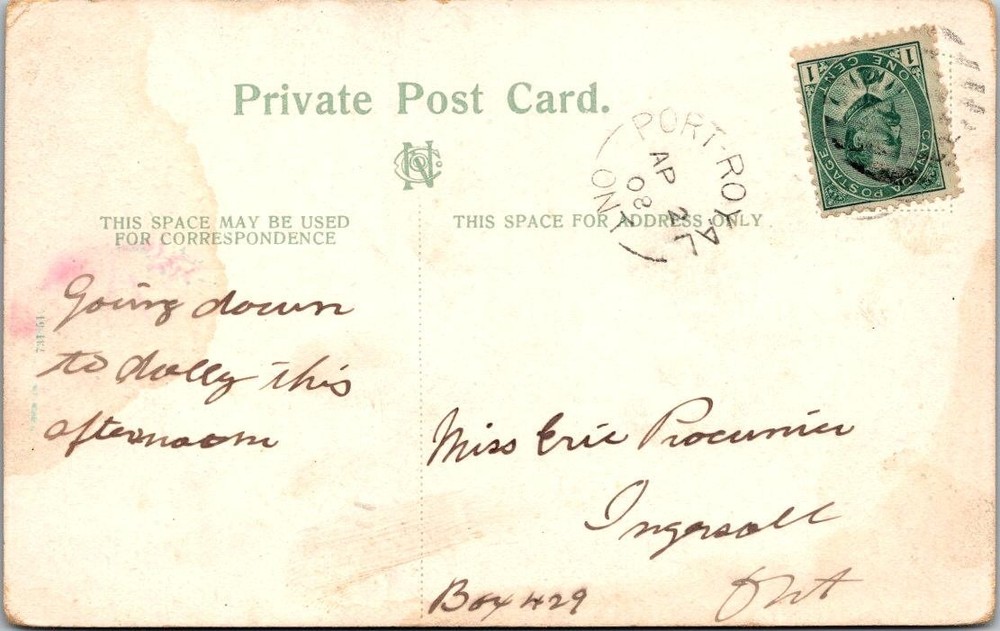 Private Post Card.
THIS SPACE MAY BE USED
FOR CORRESPONDENCE
THIS SPACE FOR ADDRESS ONLY
PORT-ROYAL
AP 2
08
ONT
1 ONE CENT 1
CANADA POSTAGE
Going down
to dolly this
afternoon
Miss Eric Procunier
Ingersoll
Box 429
Ont